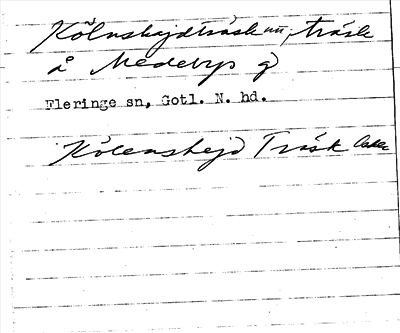 Kölnshajdträsk un, träsk
å Medebys g
Fleringe sn, Gotl. N. hd.
Kölenshejd Träsk